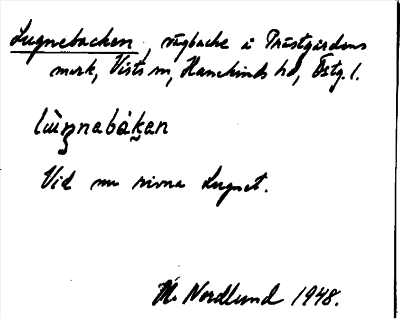 Lugnebacken, vägbacke i Prästgårdens
mark, Vists sn, Hanekinds hd, Östg. l.
lùŋnabákan
Vid nu rivna Lugnet.
Nordlund 1948.